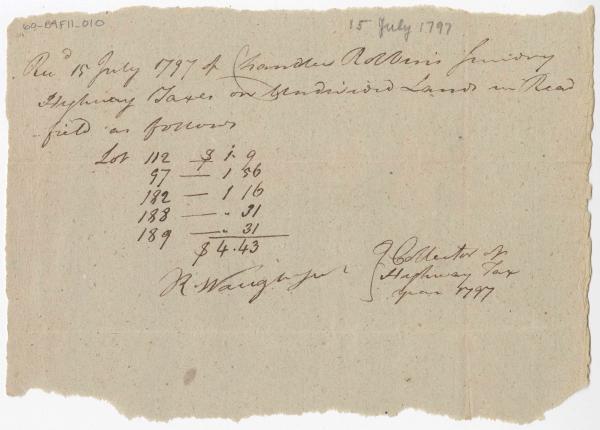 69-B9F11-010
15 July 1797
Recd 15 July 1797 of Chandler Robbins Juniors
Highway Taxes on Undivided Lands in Read
field as follows
Lot 112 $ 1. 9
97 — 1 56
182 — 1 16
188 — .. 31
189 — .. 31
$ 4.43
R. Waugh Jur
Collector of
Highway Tax
year 1797